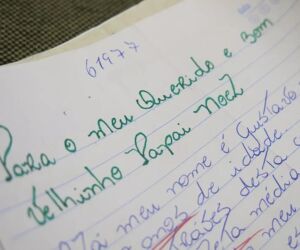 61977
Para o meu Querido e Bom
Velhinho Papai Noel
meu nome é Gustavo
anos de idade.
desta
média
meu